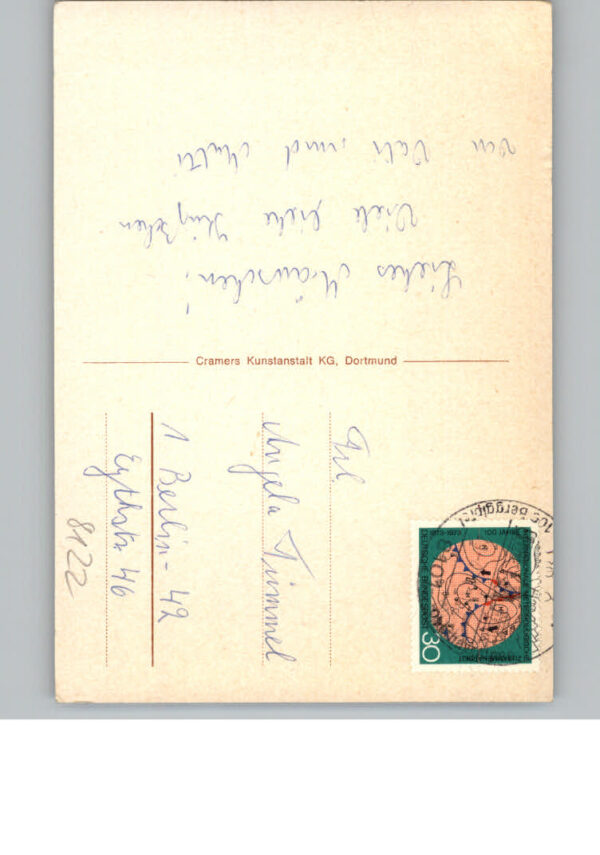 Liebes Mäuschen!
Viele liebe Küßchen
von Vati und Mutti
Cramers Kunstanstalt KG, Dortmund
Frl.
Angela Timmel
1 Berlin-42
Eythstr. 46
8122
DEUTSCHE BUNDESPOST
30
ZUSAMMENARBEIT
100 Berggipfel